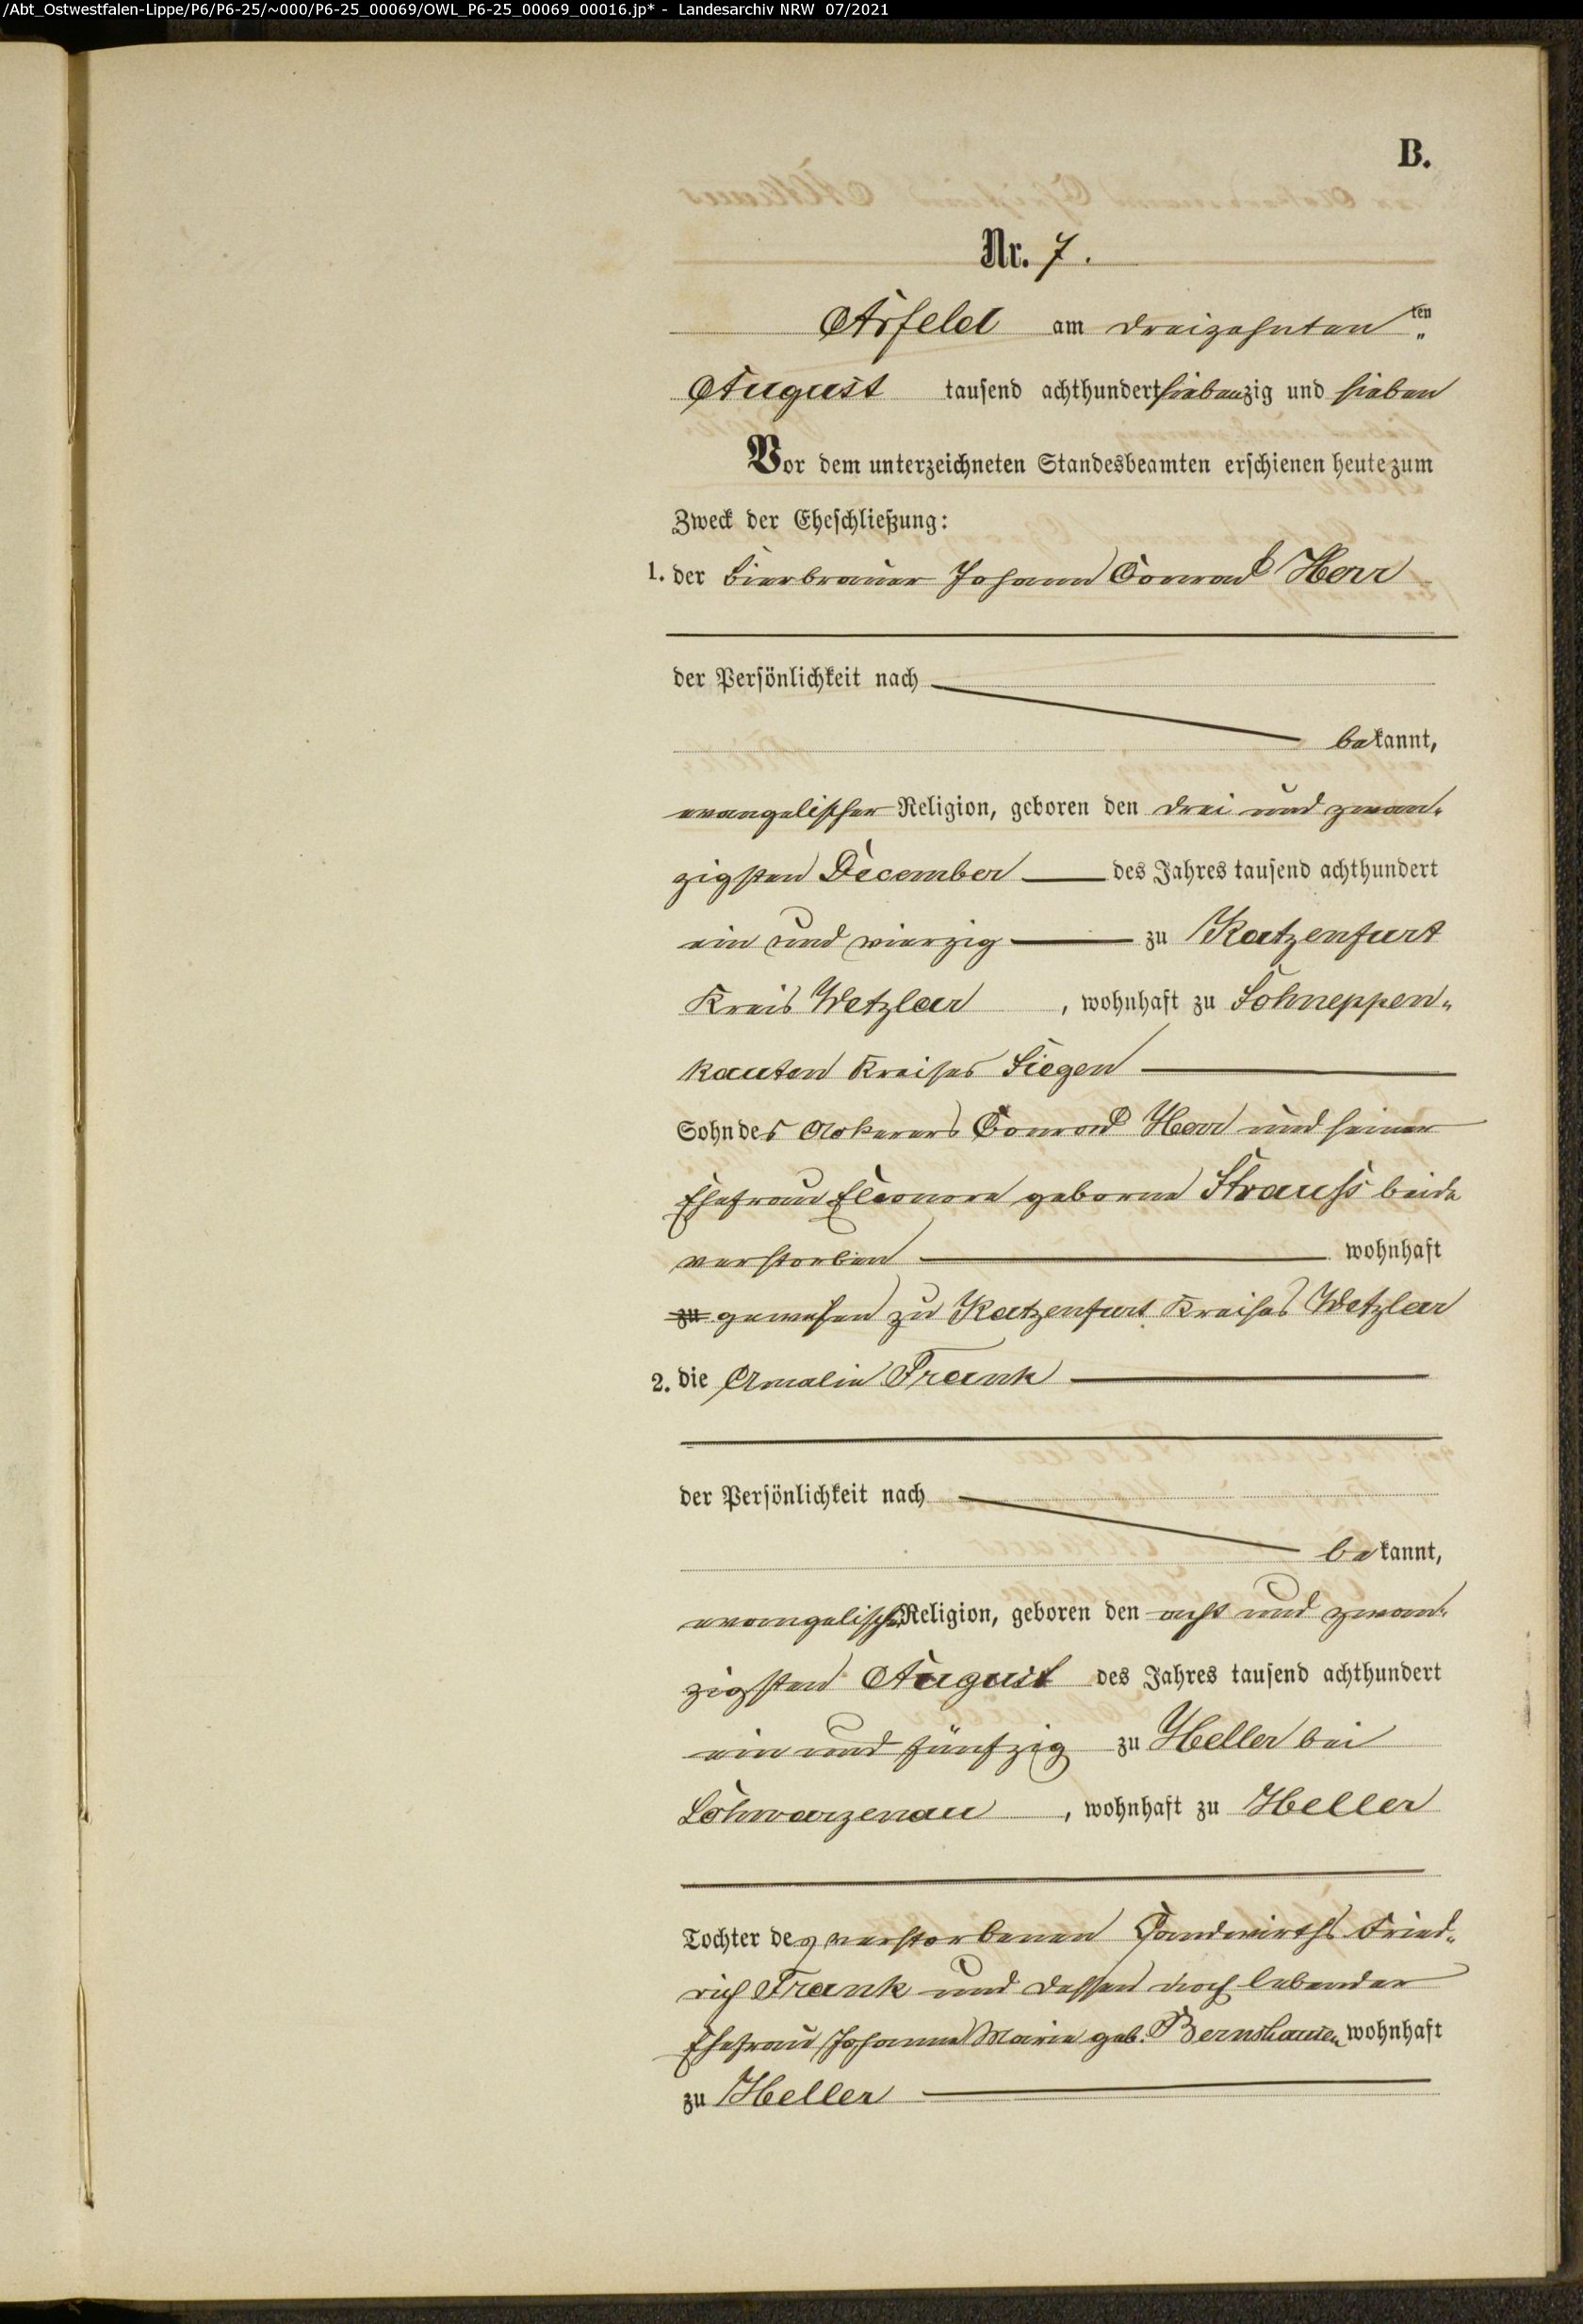 /Abt_Ostwestfalen-Lippe/P6/P6-25/~000/P6-25_00069/OWL_P6-25_00069_00016.jp* - Landesarchiv NRW 07/2021
B.
Nr. 7.
Arfeld am dreizehnten ten
August tausend achthundert siebenzig und sieben
Vor dem unterzeichneten Standesbeamten erschienen heute zum
Zweck der Eheschließung:
1. der Bierbrauer Johann Conrad Herr
der Persönlichkeit nach
bekannt,
evangelischer Religion, geboren den drei und zwan-
zigsten December des Jahres tausend achthundert
ein und vierzig zu Katzenfurt
Kreis Wetzlar, wohnhaft zu Schneppen-
kauten Kreises Siegen
Sohn des Ackerers Conrad Herr und seiner
Ehefrau Eleonore geborne Strauß beide
verstorben wohnhaft
zu gewesen zu Katzenfurt Kreises Wetzlar
2. die Amalie Frank
der Persönlichkeit nach
bekannt,
evangelischer Religion, geboren den acht und zwan-
zigsten August des Jahres tausend achthundert
ein und fünfzig zu Heller bei
Schwarzenau, wohnhaft zu Heller
Tochter des verstorbenen Landwirths Fried-
rich Frank und dessen noch lebender
Ehefrau Johanne Marie geb. Bernshausen wohnhaft
zu Heller